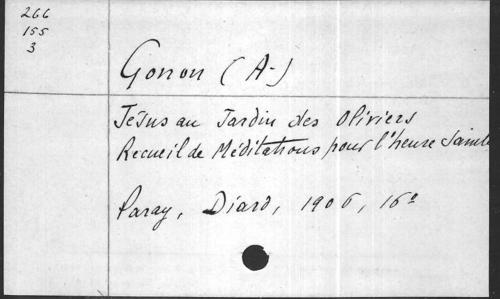 266
155
3
Gonon (A-)
Jésus au Jardin des Oliviers
Recueil de Méditations pour l'heure Sainte
Paray, Diard, 1906, 16º